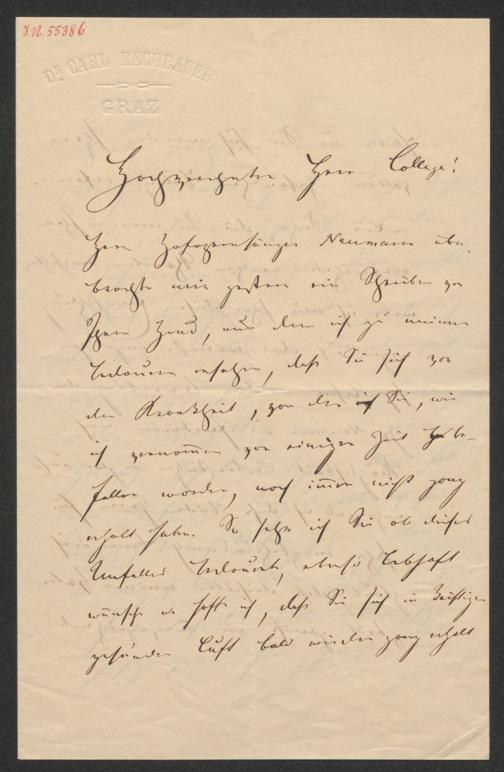 I.N. 55386
Dr CARL RECHBAUER
GRAZ
Hochverehrter Herr College!
Herr Hofopernsänger Neumann über-
brachte mir gestern ein Schreiben von
Ihrer Hand, aus dem ich zu meinem
Bedauern ersehen, daß Sie sich von
der Krankheit, von der Sie, wie
ich vernommen vor einiger Zeit be-
fallen worden, noch immer nicht ganz
erholt haben. So sehr ich Sie ob dieses
Unfalles bedaure, ebenso lebhaft
wünsche u hoffe ich, daß Sie sich in
gesünder Luft bald wieder ganz erholt